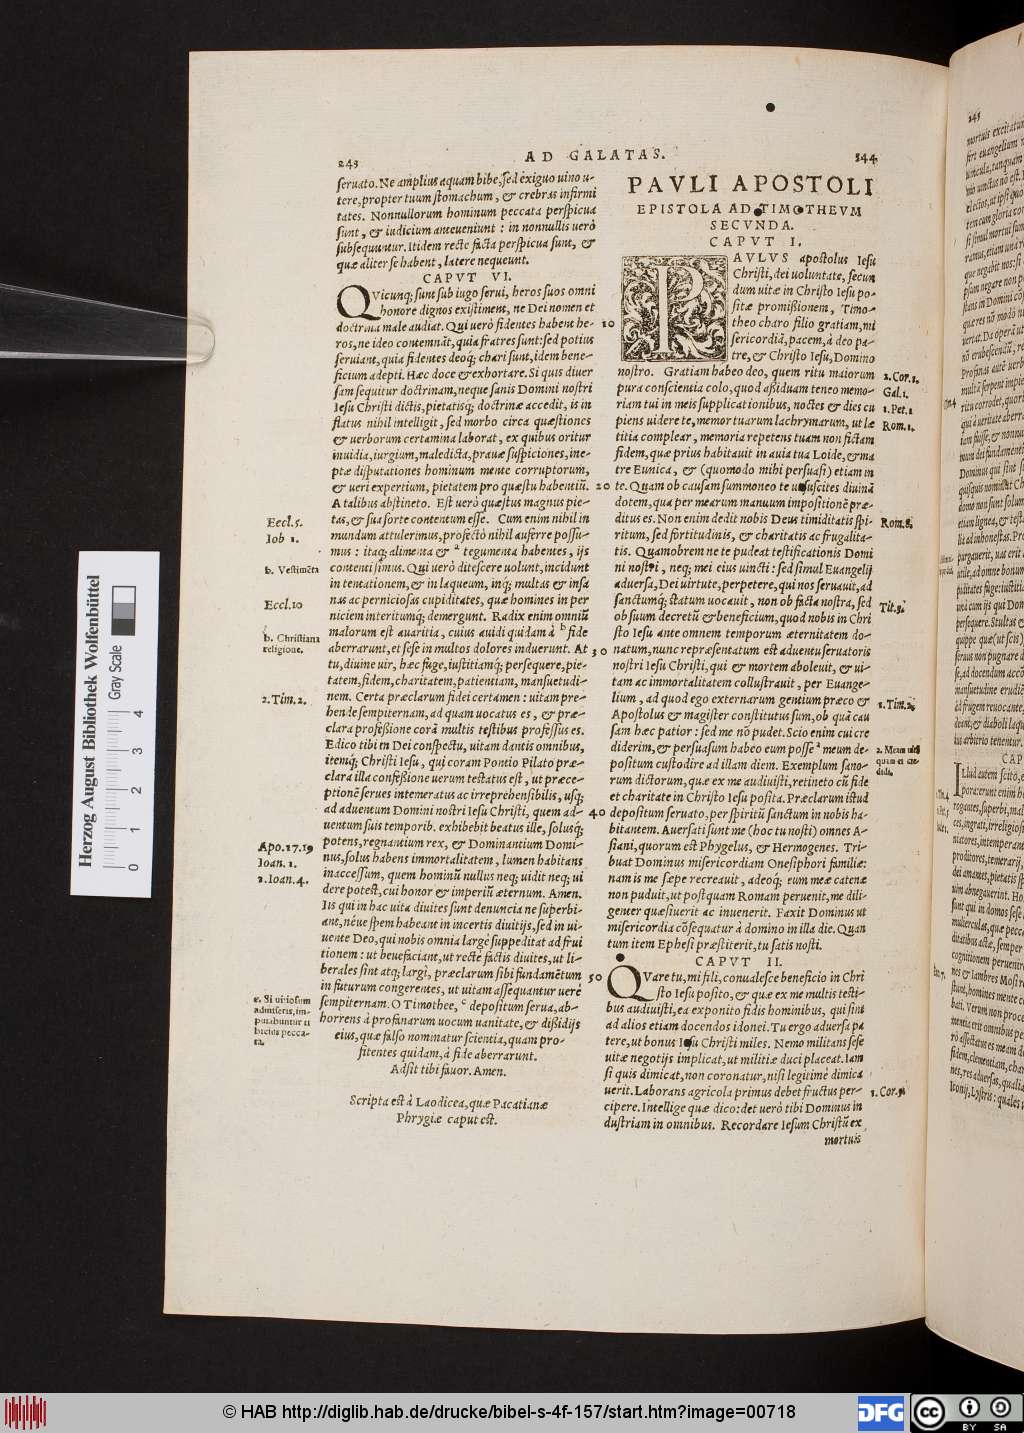 AD GALATAS.
243
seruato. Ne amplius aquam bibe, sed exiguo uino u-
tere, propter tuum stomachum, & crebras infirmi
tates. Nonnullorum hominum peccata perspicua
sunt, & iudicium anteueniunt: in nonnullis uerò
subsequuntur. Itidem rectè facta perspicua sunt, &
quæ aliter se habent, latere nequeunt.
CAPVT VI.
QVicunq; sunt sub iugo serui, heros suos omni
honore dignos existiment, ne Dei nomen et
doctrina male audiat. Qui uerò fidentes habent he-
ros, ne ideo contemnãt, quia fratres sunt: sed potius
seruiant, quia fidentes deoq; chari sunt, idem bene-
ficium adepti. Hæc doce & exhortare. Si quis diuer
sam sequitur doctrinam, neque sanis Domini nostri
Iesu Christi dictis, pietatisq; doctrinæ accedit, is in
flatus nihil intelligit, sed morbo circa quæstiones
& uerborum certamina laborat, ex quibus oritur
inuidia, iurgium, maledicta, prauæ suspiciones, ine-
ptæ disputationes hominum mente corruptorum,
& ueri expertium, pietatem pro quæstu habentiũ.
A talibus abstineto. Est uerò quæstus magnus pie-
tas, & sua sorte contentum esse. Cum enim nihil in
mundum attulerimus, profectò nihil auferre possu-
mus: itaq; alimenta & a tegumenta habentes, ijs
contenti simus. Qui uerò ditescere uolunt, incidunt
in tentationem, & in laqueum, inq; multas & insa
nas ac perniciosas cupiditates, quæ homines in per
niciem interitumq; demergunt. Radix enim omniũ
malorum est auaritia, cuius auidi quidam à b fide
aberrarunt, et sese in multos dolores induerunt. At
tu, diuine uir, hæc fuge, iustitiamq; persequere, pie-
tatem, fidem, charitatem, patientiam, mansuetudi-
nem. Certa præclarum fidei certamen: uitam pre-
hende sempiternam, ad quam uocatus es, & præ-
clara professione corã multis testibus professus es.
Edico tibi in Dei conspectu, uitam dantis omnibus,
itemq; Christi Iesu, qui coram Pontio Pilato præ-
clara illa confessione uerum testatus est, ut præce-
ptionẽ serues intemeratus ac irreprehensibilis, usq;
ad aduentum Domini nostri Iesu Christi, quem ad-
uentum suis temporib. exhibebit beatus ille, solusq;
potens, regnantium rex, & Dominantium Domi-
nus, solus habens immortalitatem, lumen habitans
inaccessum, quem hominũ nullus neq; uidit neq; ui
dere potest, cui honor & imperiũ æternum. Amen.
Iis qui in hac uita diuites sunt denuncia ne superbi-
ant, néue spem habeant in incertis diuitijs, sed in ui-
uente Deo, qui nobis omnia largè suppeditat ad frui
tionem: ut beneficiant, ut rectè factis diuites, ut li-
berales sint atq; largi, præclarum sibi fundamẽtum
in futurum congerentes, ut uitam assequantur uerè
sempiternam. O Timothee, c depositum serua, ab-
horrens à profanarum uocum uanitate, & dissidijs
eius, quæ falso nominatur scientia, quam pro-
fitentes quidam, à fide aberrarunt.
Adsit tibi fauor. Amen.
Scripta est à Laodicea, quæ Pacatianæ
Phrygiæ caput est.
Eccl. 5.
Iob 1.
b. Vestimẽta
Eccl. 10
b. Christiana
religione.
2. Tim. 2.
Apo. 17. 19
Ioan. 1.
1. Ioan. 4.
admiseris, im-
putabuntur ti
bi eius pecca-
ta.
10
20
30
40
50
244
PAVLI APOSTOLI
EPISTOLA AD TIMOTHEVM
SECVNDA.
CAPVT I.
PAVLVS apostolus Iesu
Christi, dei uoluntate, secun
dum uitæ in Christo Iesu po-
sitæ promissionem, Timo-
theo charo filio gratiam, mi
sericordiã, pacem, à deo pa-
tre, & Christo Iesu, Domino
nostro. Gratiam habeo deo, quem ritu maiorum
pura conscientia colo, quod assiduam teneo memo-
riam tui in meis supplicationibus, noctes & dies cu
piens uidere te, memor tuarum lachrymarum, ut læ
titia complear, memoria repetens tuam non fictam
fidem, quæ prius habitauit in auia tua Loide, & ma
tre Eunica, & (quomodo mihi persuasi) etiam in
te. Quam ob causam summoneo te ut suscites diuinã
dotem, qua per mearum manuum impositionẽ præ-
ditus es. Non enim dedit nobis Deus timiditatis spi-
ritum, sed fortitudinis, & charitatis ac frugalita-
tis. Quamobrem ne te pudeat testificationis Domi
ni nostri, neq; mei eius uincti: sed simul Euangelij
aduersa, Dei uirtute, perpetere, qui nos seruauit, ad
sanctumq; statum uocauit, non ob facta nostra, sed
ob suum decretũ & beneficium, quod nobis in Chri
sto Iesu ante omnem temporum æternitatem do-
natum, nunc repræsentatum est aduentu seruatoris
nostri Iesu Christi, qui & mortem aboleuit, & ui-
tam ac immortalitatem collustrauit, per Euange-
lium, ad quod ego externarum gentium præco &
Apostolus & magister constitutus sum, ob quã cau
sam hæc patior: sed me nõ pudet. Scio enim cui cre
diderim, & persuasum habeo eum posse a meum de-
positum custodire ad illam diem. Exemplum sano-
rum dictorum, quæ ex me audiuisti, retineto cũ fide
et charitate in Christo Iesu posita. Præclarum istud
depositum seruato, per spiritũ sanctum in nobis ha-
bitantem. Auersati sunt me (hoc tu nosti) omnes A-
siani, quorum est Phygelus, & Hermogenes. Tri-
buat Dominus misericordiam Onesiphori familiæ:
nam is me sæpe recreauit, adeoq; eum meæ catenæ
non puduit, ut postquam Romam peruenit, me dili-
genter quæsiuerit ac inuenerit. Faxit Dominus ut
misericordia cõsequatur à domino in illa die. Quan
tum item Ephesi præstiterit, tu satis nosti.
CAPVT II.
QVare tu, mi fili, conualesce beneficio in Chri
sto Iesu posito, & quæ ex me multis testi-
bus audiuisti, ea exponito fidis hominibus, qui sint
ad alios etiam docendos idonei. Tu ergo aduersa pa
tere, ut bonus Iesu Christi miles. Nemo militans sese
uitæ negotijs implicat, ut militiæ duci placeat. Iam
si quis dimicat, non coronatur, nisi legitimè dimica
uerit. Laborans agricola primus debet fructus per-
cipere. Intellige quæ dico: det uerò tibi Dominus in
dustriam in omnibus. Recordare Iesum Christũ ex
mortuis
2. Cor. 1.
Gal. 1.
1. Pet. 1
Rom. 1.
Rom. 8.
Tit. 3.
1. Tim. 2.
1. Cor. 9.
245
Herzog August Bibliothek Wolfenbüttel
Gray Scale
0 1 2 3 4
© HAB http://diglib.hab.de/drucke/bibel-s-4f-157/start.htm?image=00718
DFG
cc
BY SA